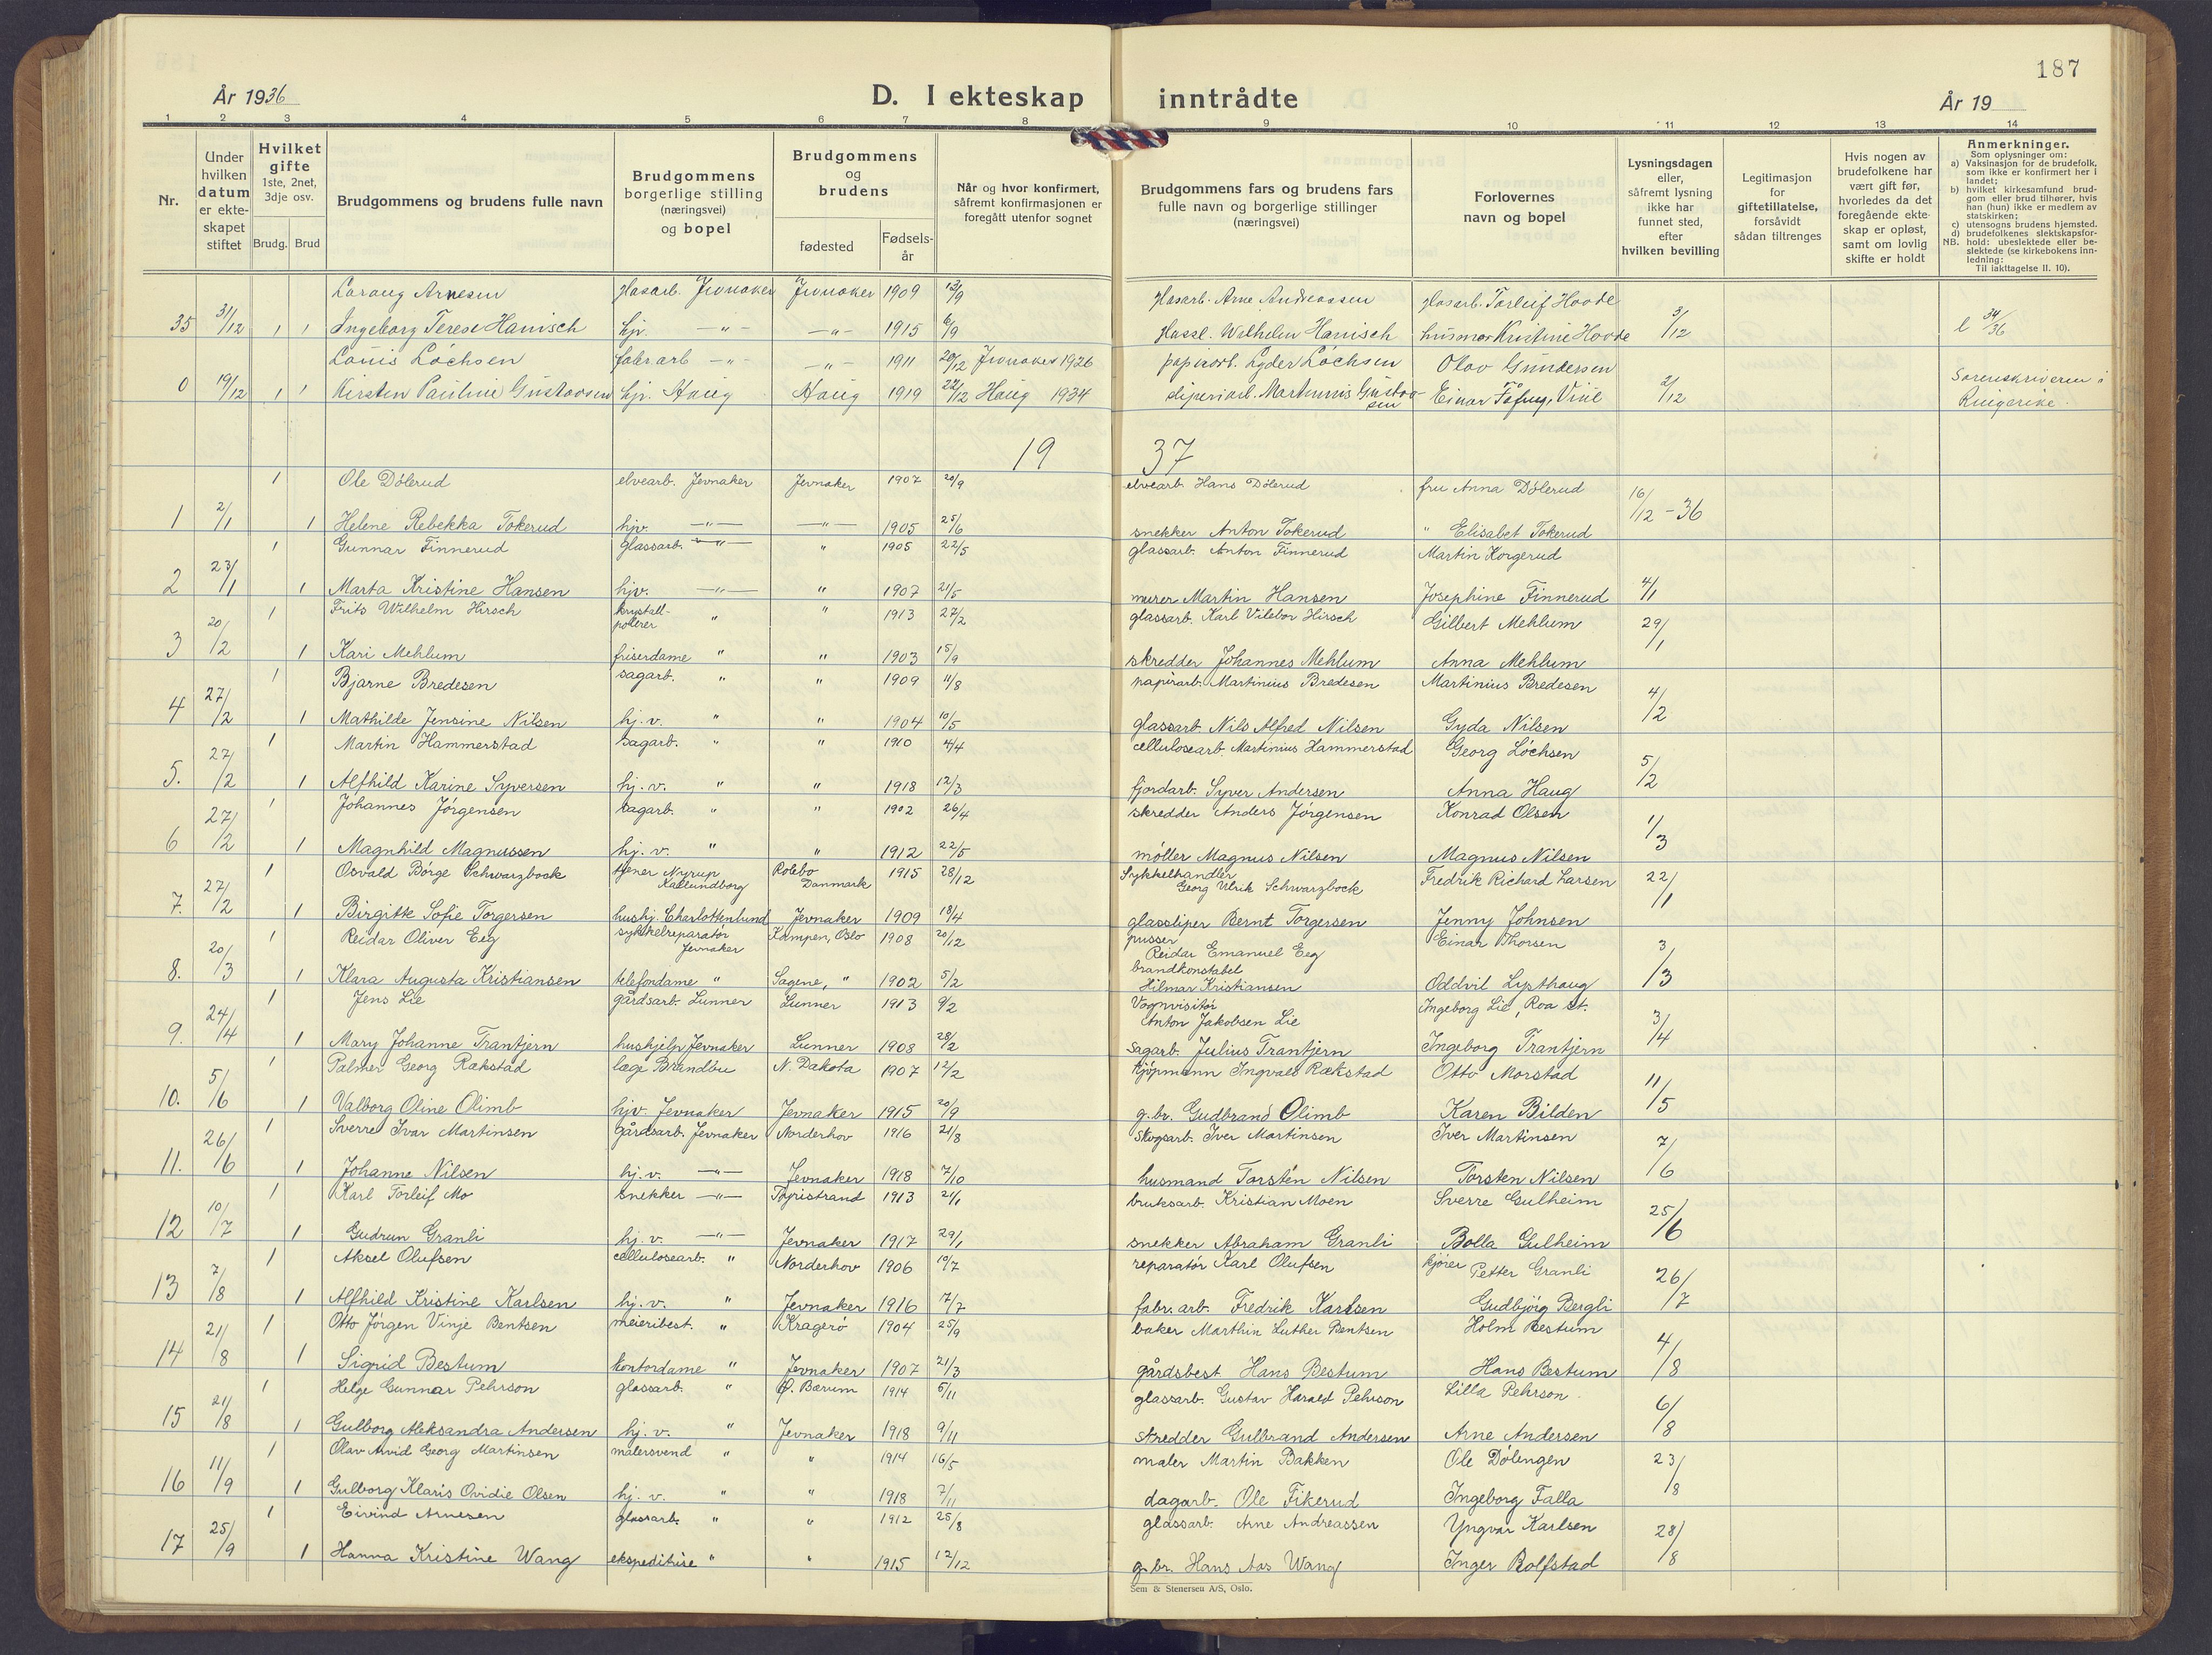 187
År 1936
D. I ekteskap inntrådte
År 19
1 2 3 4 5 6 7 8 9 10 11 12 13 14
Nr.
Under hvilken datum er ekteskapet stiftet
Hvilket gifte 1ste, 2net, 3dje osv.
Brudg. Brud
Brudgommens og brudens fulle navn
Brudgommens borgerlige stilling (næringsvei) og bopel
Brudgommens og brudens
fødested
Fødselsår
Når og hvor konfirmert, såfremt konfirmasjonen er foregått utenfor sognet
Brudgommens fars og brudens fars fulle navn og borgerlige stillinger (næringsvei)
Forlovernes navn og bopel
Lysningsdagen eller, såfremt lysning ikke har funnet sted, efter hvilken bevilling
Legitimasjon for giftetillatelse, forsåvidt sådan tiltrenges
Hvis nogen av brudefolkene har vært gift før, hvorledes da det foregående ekteskap er opløst, samt om lovlig skifte er holdt
Anmerkninger.
Som oplysninger om:
a) Vaksinasjon for de brudefolk, som ikke er konfirmert her i landet;
b) hvilket kirkesamfund brudgom eller brud tilhører, hvis han (hun) ikke er medlem av statskirken;
c) utensogns brudens hjemsted.
d) brudefolkenes slektskapsforhold: ubeslektede eller beslektede (se kirkebokens innledning:
NB. Til iakttagelse II. 10).
Arnesen Glasarb. Jevnaker Jevnaker 1909 13/9 Glasarb. Arne Andreassen Glasarb. Torleif Hovde
35 31/12 1 1 Ingeborg Terese Hanisch hjv. -"- -"- 1915 6/9 Wilhelm Hanisch husmor Kristine Hovde 3/12 34/36
Louis Løchsen fabr.arb -"- -"- 1911 20/12 Jevnaker 1926 papirarb. Lyder Løchsen Olav Gundersen
0 19/12 1 1 Kirsten Pauline Gustavsen hjv. Haug Haug 1919 22/12 Haug 1934 sliperiarb. Martinius Gustavsen Einar 2/12 Sorenskriveren i Ringerike.
19 37
1 Ole Dølerud elvearb. Jevnaker Jevnaker 1907 20/9 elvearb. Hans Dølerud fru Anna Dølerud
1 2/1 1 Helene Rebekka Tokerud hjv. -"- -"- 1905 25/6 snekker Anton Tokerud " Elisabet Tokerud 16/12 - 36
1 Gunnar Finnerud glassarb. -"- " 1905 22/5 glassarb. Anton Finnerud Martin Korgerud
2 23/1 1 Marta Kristine Hansen hjv. -"- " 1907 21/5 murer Martin Hansen Josephine Finnerud 4/1
1 Frits Wilhelm Hirsch krystallpolerer " " 1913 27/2 glassarb. Karl Vilebor Hirsch Gilbert Mehlum
3 20/2 1 Kari Mehlum friserdame " " 1903 15/9 skredder Johannes Mehlum Anna Mehlum 29/1
1 Bjarne Bredesen sagarb. " " 1909 11/8 papirarb. Martinius Bredesen Martinius Bredesen
4 27/2 1 Mathilde Jensine Nilsen hj.v. " " 1904 10/5 glassarb. Nils Alfred Nilsen Gyda Nilsen 4/2
1 Martin Hammerstad sagarb. " " 1910 4/4 cellulosearb. Martinius Hammerstad Georg Løchsen
5. 27/2 1 Alfhild Karine Syversen hj.v. " " 1918 12/3 fjordarb. Syver Andersen Anna Haug 5/2
1 Johannes Jørgensen sagarb. " " 1902 26/4 skredder Anders Jørgensen Konrad Olsen
6 27/2 1 Magnhild Magnussen hj.v. " " 1912 22/5 møller Magnus Nilsen Magnus Nilsen 1/3
1 Osvald Børge Schwarzbock tjener Nyrup Kallundborg Rolebo Danmark 1915 28/12 Sykkelhandler Georg Ulrik Schwarzbock Fredrik Richard Larsen
7. 27/2 1 Birgitte Sofie Torgersen hushj. Charlottenlund Jevnaker 1909 18/4 glassliper Bernt Torgersen Jenny Johnsen 22/1
1 Reidar Oliver Eeg sykkelreparatør Jevnaker Kampen, Oslo 1908 20/12 pusser Reidar Emanuel Eeg Einar Thorsen
8. 20/3 1 Klara Augusta Kristiansen telefondame " Sagene, " 1902 5/2 brandkonstabel Hilmar Kristiansen Oddvil Lysthaug 3/3
1 Jens Lie gårdsarb. Lunner Lunner 1913 9/2 Vognvisitør Anton Jakobsen Lie Ingeborg Lie, Roa st.
9. 24/4 1 Mary Johanne Trantjern hushjelp Jevnaker Lunner 1908 28/2 sagarb. Julius Trantjern Ingeborg Trantjern 3/4
1 Palmer Georg Rækstad læge Brandbu N. Dakota 1907 12/2 Kjøpmann Ingvald Rækstad Otto Morstad
10. 5/6 1 Valborg Oline Olimb hjv. Jevnaker Jevnaker 1915 20/9 g.br. Gudbrand Olimb Karen Bilden 11/5
1 Sverre Ivar Martinsen gårdsarb. Jevnaker Norderhov 1916 21/8 Skogsarb. Iver Martinsen Iver Martinsen
11. 26/6 1 Johanne Nilsen hj.v. -"- Jevnaker 1918 7/10 husmand Torsten Nilsen Torsten Nilsen 7/6
1 Karl Torleif Mo snekker -"- Tyristrand 1913 21/1 bruksarb. Kristian Moen Sverre Gulheim
12 10/7 1 Gudrun Granli hj.v. -"- Jevnaker 1917 29/1 snekker Abraham Granli Bolla Gulheim 25/6
1 Aksel Olufsen cellulosearb. " Norderhov 1906 10/7 reparatør Karl Olufsen kjører Petter Granli
13 7/8 1 Alfhild Kristine Karlsen hj.v. " Jevnaker 1916 7/7 fabr.arb. Fredrik Karlsen Gudbjørg Bergli 26/7
1 Otto Jørgen Vinje Bentsen meieribest. " Kragerø 1904 25/9 baker Marthin Luther Bentsen Holm Bestum
14 21/8 1 Sigrid Bestum kontordame " Jevnaker 1907 21/3 gårdsbest. Hans Bestum Hans Bestum 4/8
1 Helge Gunnar Pehrson glassarb. " Ø. Bærum 1914 5/11 glassarb. Gustav Harald Pehrson Lilla Pehrson
15 21/8 1 Gulborg Aleksandra Andersen hj.v. " Jevnaker 1918 9/11 skredder Gulbrand Andersen Arne Andersen 6/8
1 Olav Arvid Georg Martinsen malersvend " " 1914 16/5 maler Martin Bakken Ole Dølengen
16 11/9 1 Gulborg Klaris Ovidie Olsen hj.v. " " 1918 7/11 dagarb. Ole Fikerud Ingeborg Falla 23/8
1 Eivind Arnesen glassarb. " " 1912 25/8 glassarb. Arne Andreassen Yngvar Karlsen
17 25/9 1 Hanna Kristine Wang ekspeditrise " " 1915 12/12 g.br. Hans Aas Wang Inger Rolfstad 28/8
Sem & Stenersen A/S, Oslo.